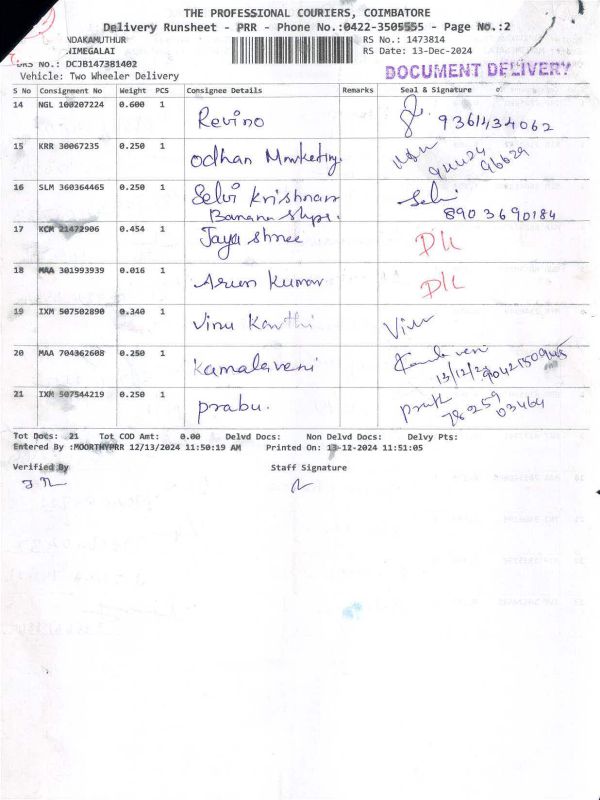 THE PROFESSIONAL COURIERS, COIMBATORE
Delivery Runsheet - PRR - Phone No.:0422-3505555 - Page No.:2
NDAKAMUTHUR
IMEGALAI
RS No.: 1473814
RS Date: 13-Dec-2024
DRS No.: DCJB147381402
Vehicle: Two Wheeler Delivery
DOCUMENT DELIVERY
S No Consignment No Weight PCS Consignee Details Remarks Seal & Signature
14 NGL 100207224 0.600 1 Revino 9361434062
15 KRR 30067235 0.250 1 odhan Marketing.
16 SLM 360364465 0.250 1 Selvi Krishnan Selvi
Banana Chips. 8903690184
17 KCM 21472906 0.454 1 Jaya Shree D/L
18 MAA 301993939 0.016 1 Arun Kumar D/L
19 IXM 507502890 0.340 1 Vinu Kanthi Vinu
20 MAA 704362608 0.250 1 Kamalaveni
13/12/24
21 IXM 507544219 0.250 1 prabu.
78259
03464
Tot Docs: 21 Tot COD Amt: 0.00 Delvd Docs: Non Delvd Docs: Delvy Pts:
Entered By :MOORTHYPRR 12/13/2024 11:50:19 AM Printed On: 13-12-2024 11:51:05
Verified By Staff Signature